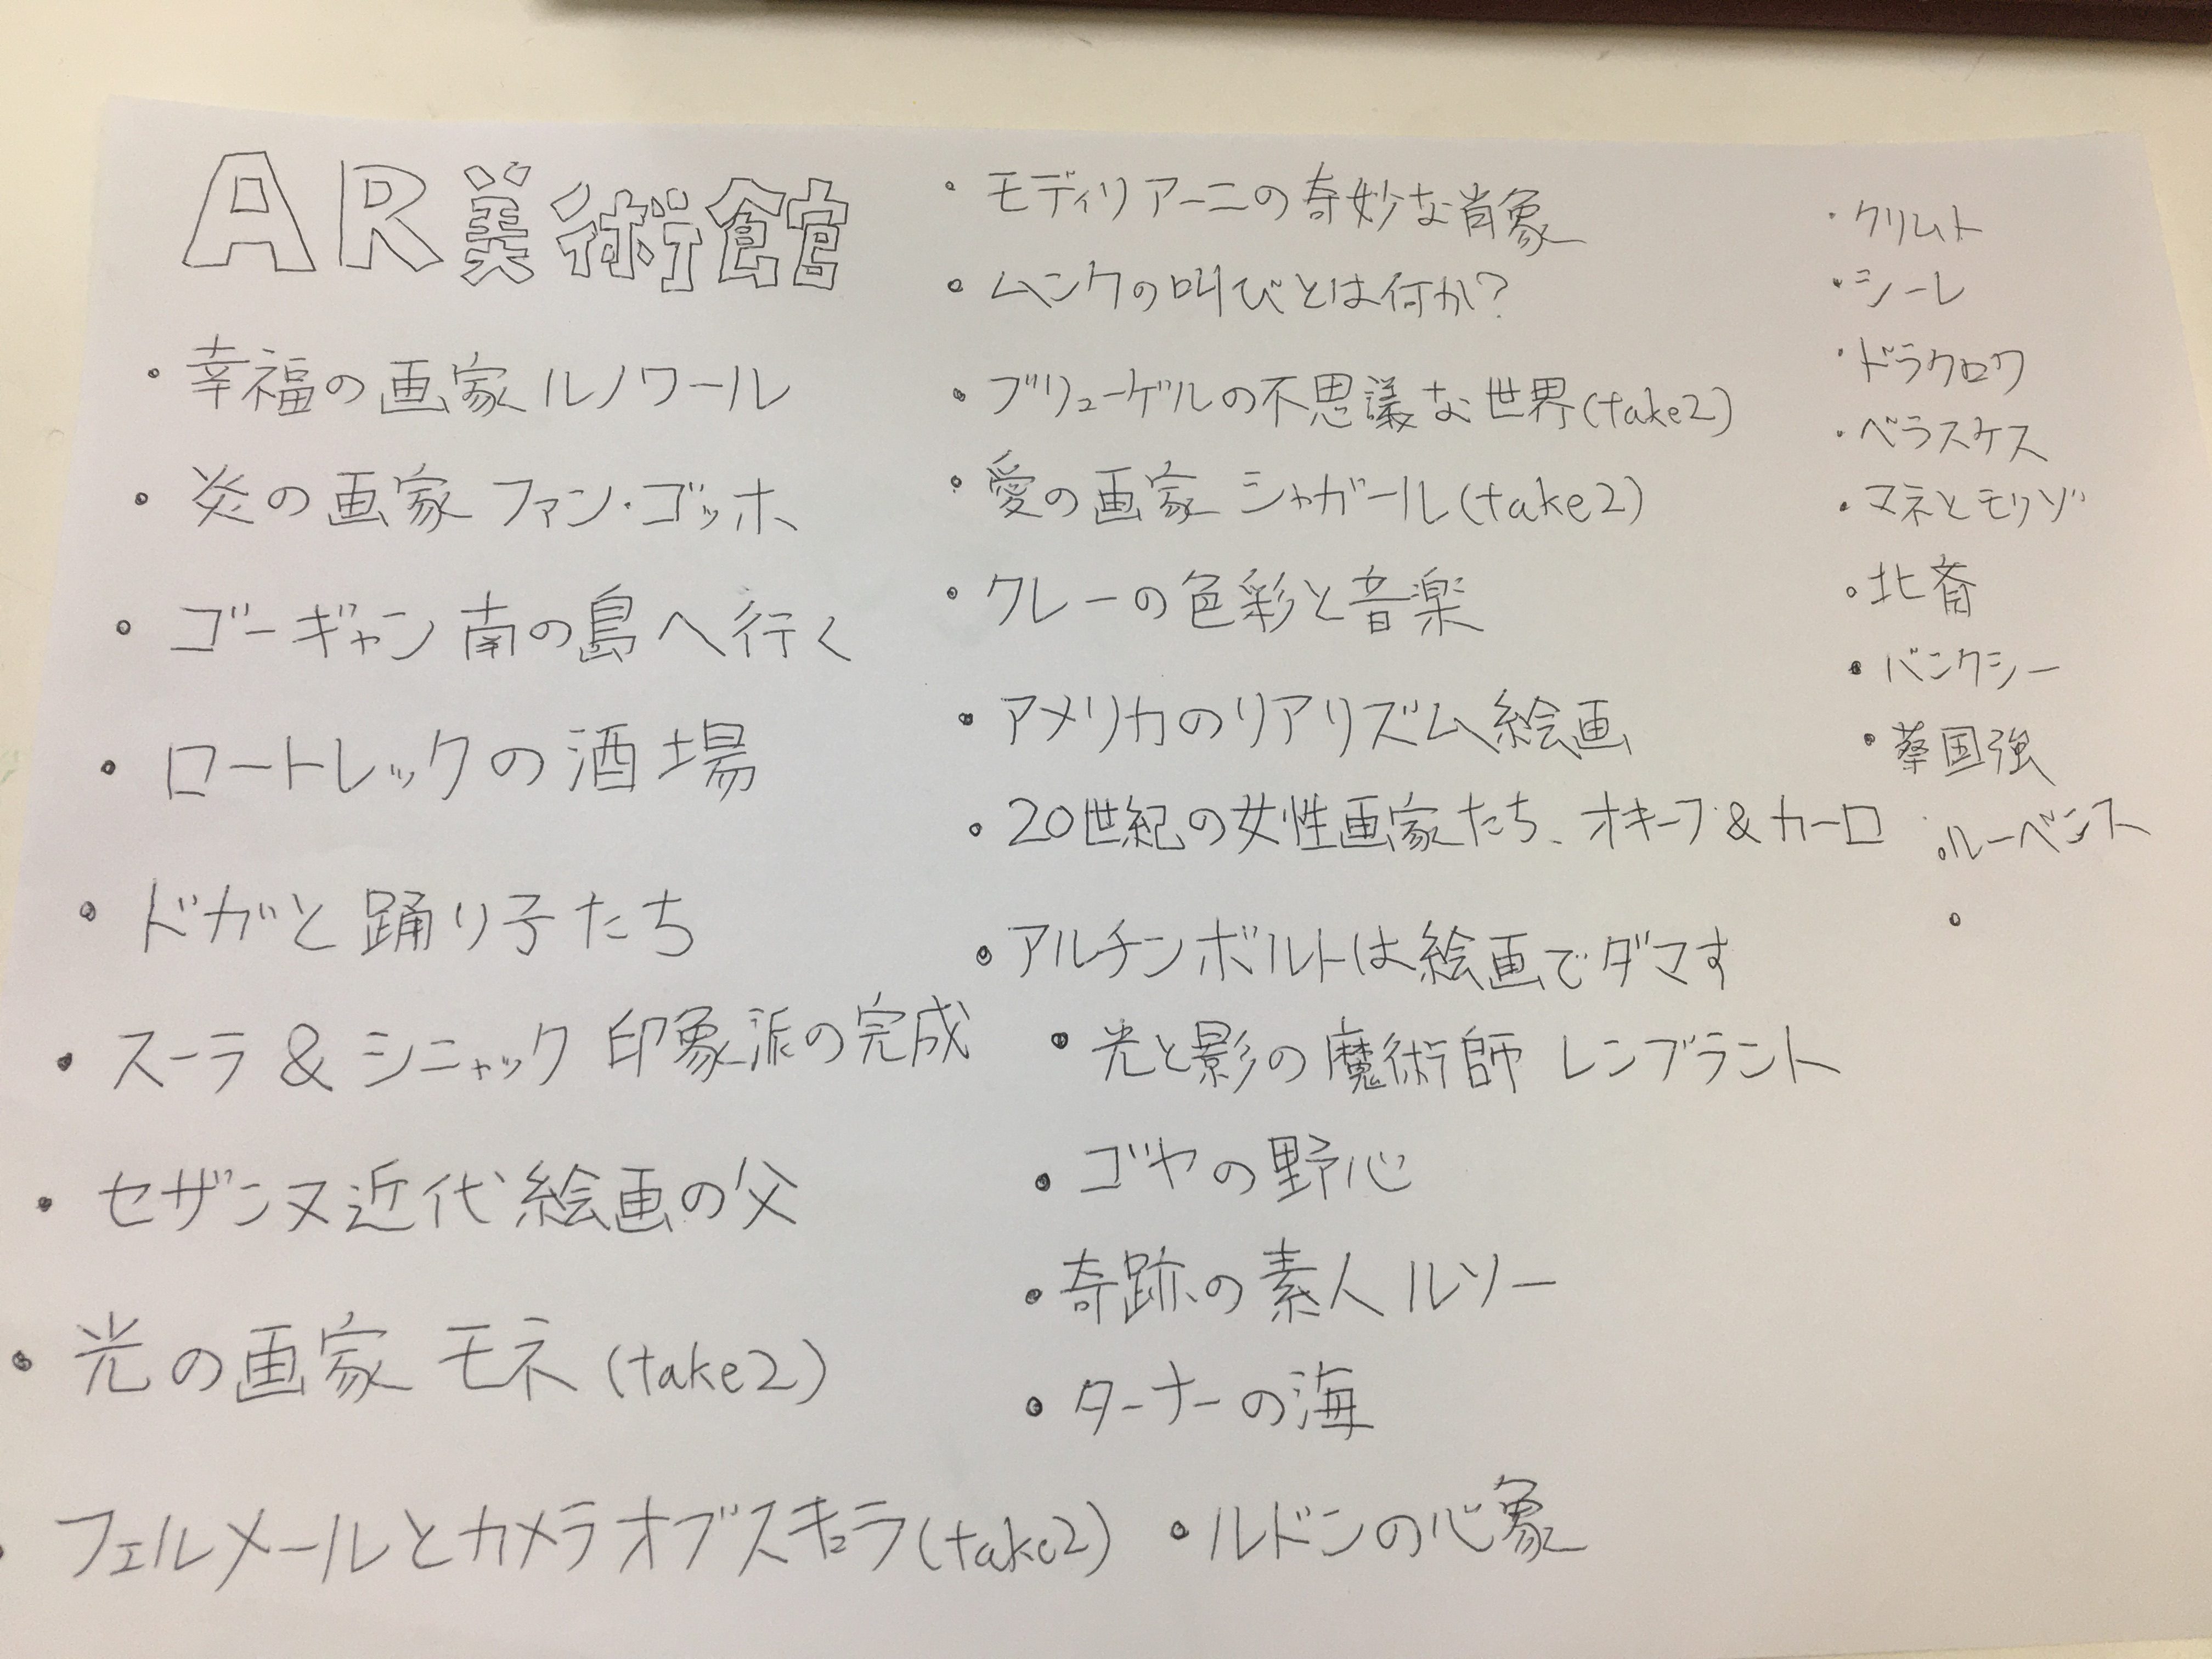 AR美術館
・幸福の画家 ルノワール
・炎の画家 ファン・ゴッホ
・ゴーギャン 南の島へ行く
・ロートレックの酒場
・ドガと踊り子たち
・スーラ & シニャック 印象派の完成
・セザンヌ近代絵画の父
・光の画家 モネ (take2)
・フェルメールとカメラオブスキュラ(take2)
・モディリアーニの奇妙な肖象
・ムンクの叫びとは何か?
・ブリューゲルの不思議な世界(take2)
・愛の画家 シャガール(take2)
・クレーの色彩と音楽
・アメリカのリアリズム絵画
・20世紀の女性画家たち、オキーフ&カーロ
・アルチンボルトは絵画でダマす
・光と影の魔術師 レンブラント
・ゴヤの野心
・奇跡の素人 ルソー
・ターナーの海
・ルドンの心象
・クリムト
・シーレ
・ドラクロワ
・ベラスケス
・マネとモリゾ
・北斎
・バンクシー
・蔡国強
・ルーベンス
・